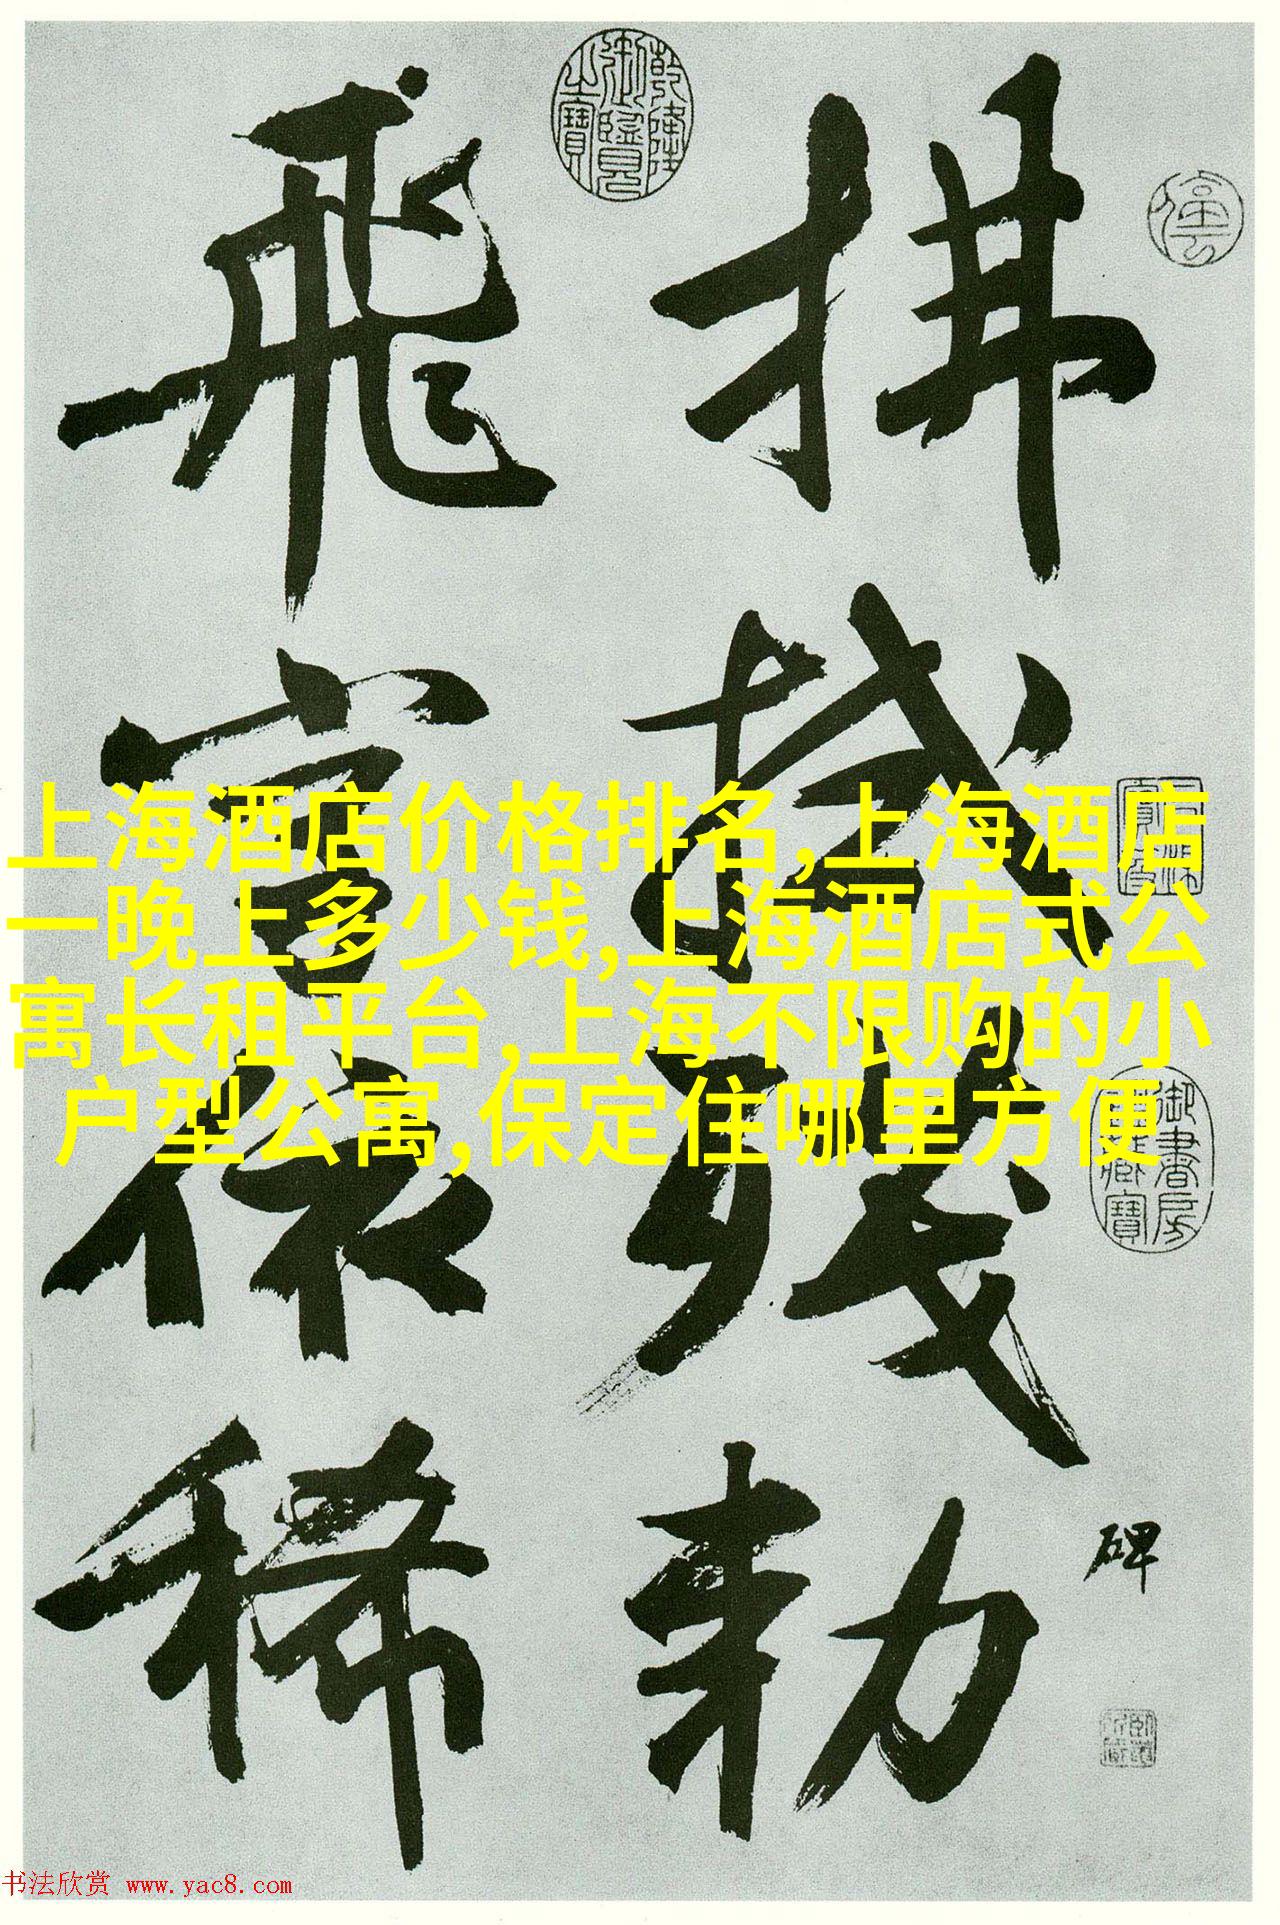 拂拭殘勅
碑
飛字依稀
乾隆御覽之寶
上海酒店价格排名,上海酒店
一晚上多少钱,上海酒店式公
寓长租平台,上海不限购的小
户型公寓,保定住哪里方便
书法欣赏 www.yac8.com